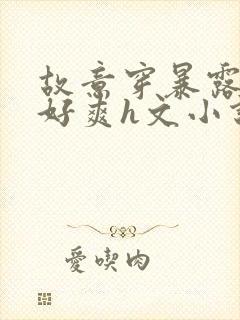 故意穿暴露
好爽h文小
愛喫肉